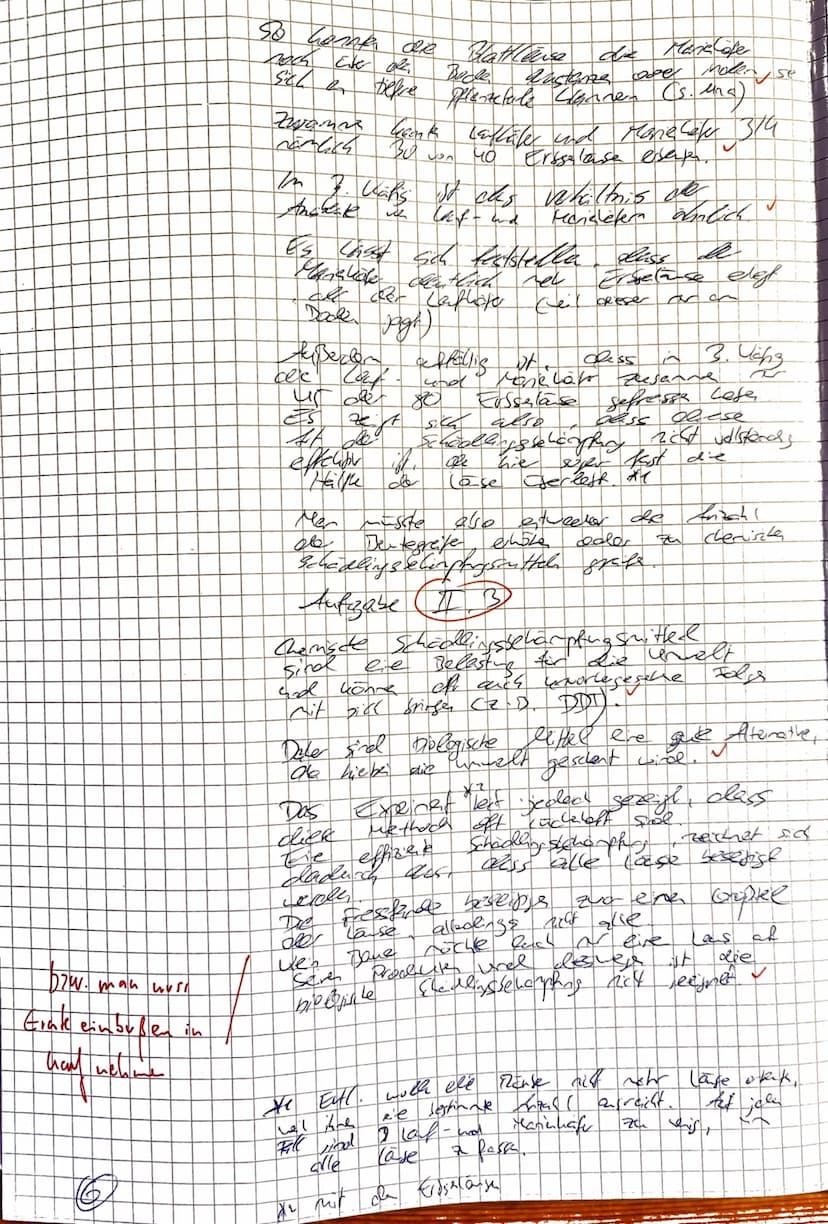 So können die Blattläuse die Marienkäfer
noch über den Boden
sich an tiefere Pflanzenteile klammern (s. Mna)
Zusammen konnten Laufkäfer und Marienkäfer 3/4
nämlich 30 von 40 Erbsenläuse erlegen.
Im 3. Käfig ist das Verhältnis der
Anzahl von Lauf- und Marienkäfern ähnlich
Es lässt sich feststellen, dass der
Marienkäfer deutlich mehr Erbsenläuse erlegt
als der Laufkäfer (weil dieser nur am
Boden jagt)
Außerdem auffällig ist, dass in 3. Käfig
die Lauf- und Marienkäfer zusammen nur
45 der 80 Erbsenläuse gefressen haben
Es zeigt sich also, dass diese
Art der Schädlingsbekämpfung nicht vollständig
effektiv ist, da hier sogar fast die
Hälfte der Läuse überlebt. *1
Man müsste also entweder die Anzahl
der Beutegreifer erhöhen oder zu chemischen
Schädlingsbekämpfungsmitteln greifen.
Aufgabe II. 3
Chemische Schädlingsbekämpfungsmittel
sind eine Belastung für die Umwelt
und können oft auch unvorhergesehene Folgen
mit sich bringen (z.B. DDT).
Daher sind biologische Mittel eine gute Alternative,
da hierbei die Umwelt geschont wird.
Das Experiment *2 hat jedoch gezeigt, dass
diese Methoden oft lückenhaft sind.
Eine effiziente Schädlingsbekämpfung zeichnet sich
dadurch aus, dass alle Läuse beseitigt
werden.
Die Fressfeinde beseitigen zwar einen Großteil
der Läuse, allerdings nicht alle
Kein Bauer möchte auch nur eine Laus auf
seinen Produkten und deswegen ist die
biologische Schädlingsbekämpfung nicht geeignet
bzw. man muss
Ernteeinbußen in
Kauf nehmen
*1 Evtl. wollen die Räuber nicht mehr Läuse
weil ihnen eine bestimmte Anzahl ausreicht. Auf jeden
Fall sind 2 Lauf- und Marienkäfer zu wenig, um
alle Läuse zu fassen.
*2 mit den Erbsenläusen
6